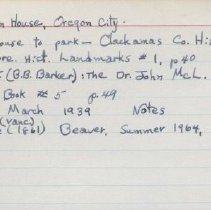 n House, Oregon City.
ouse to park - Clackamas Co. His
ore. Hist. Landmarks # 1, p40
(B.B. Barker): The Dr. John McL.
Book # 5 p.49
March 1939 Notes
(Vanc)
(1861) Beaver, Summer 1964,